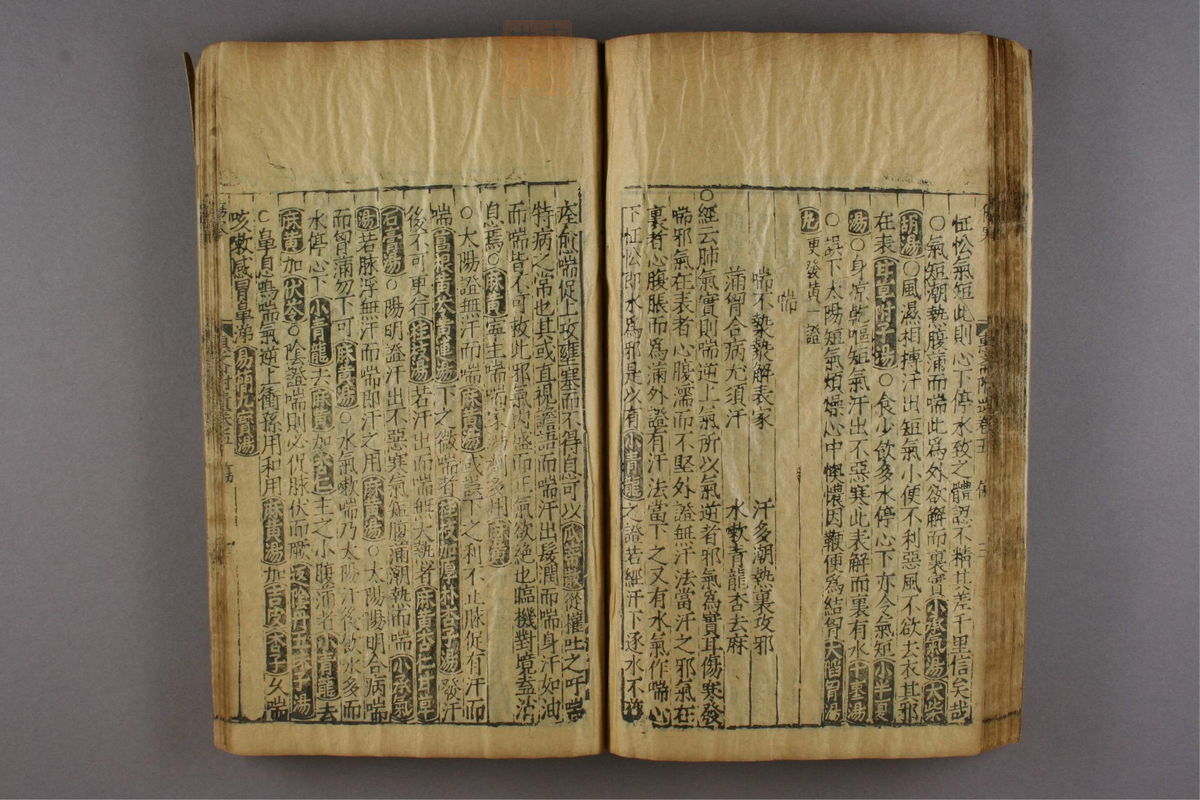 怔忪氣短此則心下停水致之體認不精其差千里信矣哉
○氣短潮熱腹滿而喘此爲外欲解而裏實小承氣湯大柴
胡湯○風濕相搏汗出短氣小便不利惡風不欲去衣其邪
在表甘草附子湯○食少飲多水停心下亦令氣短小半夏
湯○身凉乾嘔短氣汗出不惡寒此表解而裏有水十棗湯
○誤下太陽短氣煩燥心中懊憹因鞕便爲結胷大陷胷湯
丸更發黃一證
喘
喘不染熱解表家 汗多潮熱裏攻邪
滿胷合病尤須汗 水嗽青龍杏去麻
○經云肺氣實則喘逆上氣所以氣逆者邪氣爲實耳傷寒發
喘邪氣在表者心腹濡而不堅外證無汗法當汗之邪氣在
裏者心腹脹而爲滿外證有汗法當下之又有水氣作喘心
下怔忪即水爲邪是以有小青龍之證若經汗下逐水不
愈喘促上攻壅塞而不得息可以瓜蒂散從權吐之吁喘
特病之常也其或直視譫語而喘汗出髮潤而喘身汗如油
而喘皆不可救此邪氣內盛而正氣欲絶也臨機對境盍沾
息焉○麻黃定主喘喘家湯劑多用麻黃
○太陽證無汗而喘麻黃湯或誤下之利不止脉促有汗而
喘葛根黃芩黃連湯下之微喘者桂枝加厚朴杏子湯發汗
後不可更行桂枝湯若汗出而喘無大熱者麻黃杏仁甘草
石膏湯○陽明證汗出不惡寒氣短腹滿潮熱而喘小承氣
湯若脉浮無汗而喘即汗之用麻黃湯○太陽陽明合病喘
而胷滿勿下可麻黃湯○水氣嗽喘乃太陽汗後飲水多而
水停心下小青龍去麻黃加杏仁主之小腹滿者小青龍去
麻黃加伏苓○陰證喘則必促脉伏而厥返陰丹五味子湯
○鼻息鳴喘氣逆上衝孫用和用麻黃湯加吉皮杏子久喘
咳嗽感冒鼻涕易簡九寶湯